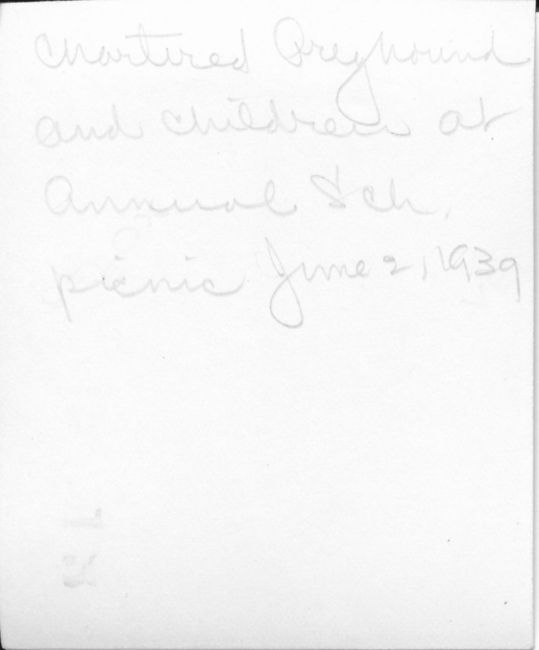 Chartered Greyhound
and children at
Annual Sch.
picnic June 2, 1939